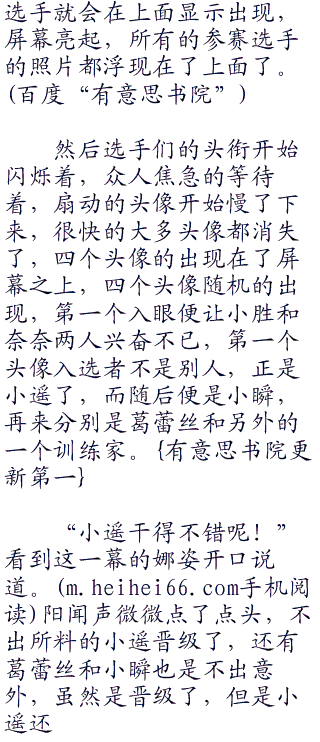 选手就会在上面显示出现，
屏幕亮起，所有的参赛选手
的照片都浮现在了上面了。
(百度“有意思书院”)
然后选手们的头衔开始
闪烁着，众人焦急的等待
着，扇动的头像开始慢了下
来，很快的大多头像都消失
了，四个头像的出现在了屏
幕之上，四个头像随机的出
现，第一个入眼便让小胜和
奈奈两人兴奋不已，第一个
头像入选者不是别人，正是
小遥了，而随后便是小瞬，
再来分别是葛蕾丝和另外的
一个训练家。{有意思书院更
新第一}
“小遥干得不错呢！”
看到这一幕的娜姿开口说
道。(m.heihei66.com手机阅
读)阳闻声微微点了点头，不
出所料的小遥晋级了，还有
葛蕾丝和小瞬也是不出意
外，虽然是晋级了，但是小
遥还